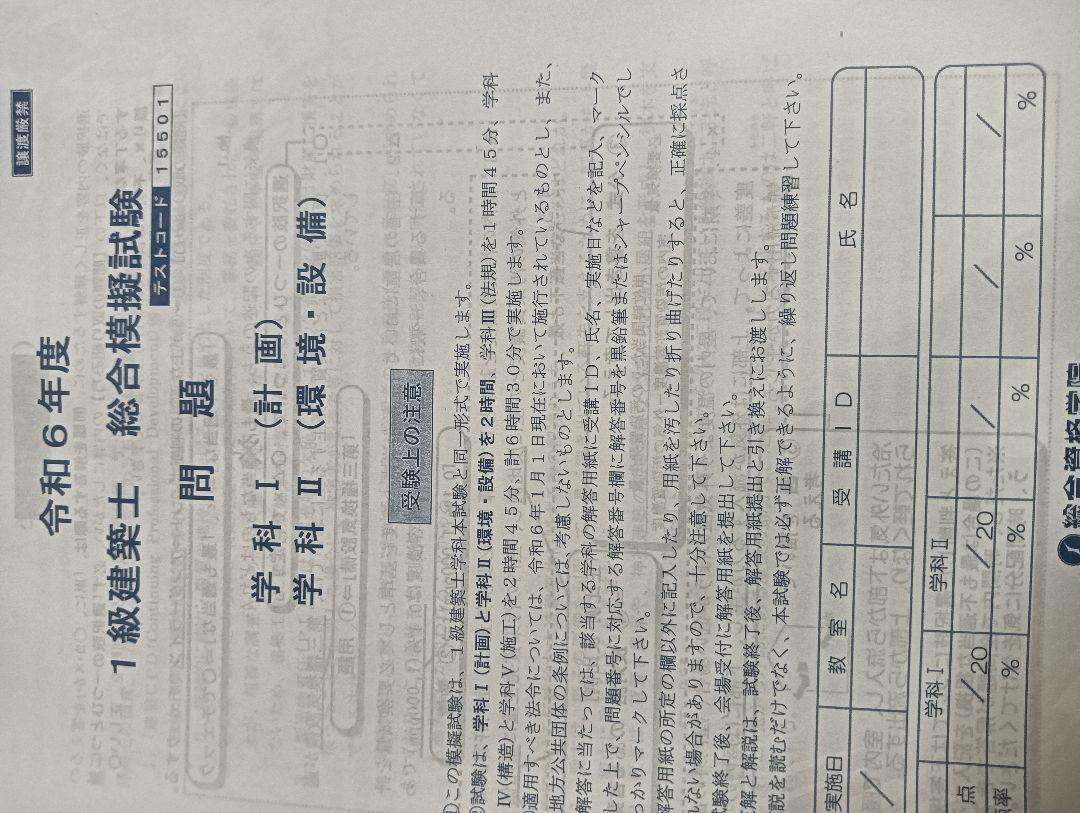 譲渡厳禁
令和6年度
1級建築士 総合模擬試験
テストコード 15501
問題
学科Ⅰ(計画)
学科Ⅱ(環境・設備)
受験上の注意
この模擬試験は、1級建築士学科本試験と同一形式で実施します。
試験は、学科Ⅰ(計画)と学科Ⅱ(環境・設備)を2時間、学科Ⅲ(法規)を1時間45分、学科
Ⅳ(構造)と学科Ⅴ(施工)を2時間45分、計6時間30分で実施します。
適用すべき法令については、令和6年1月1日現在において施行されているものとし、また、
地方公共団体の条例については、考慮しないものとします。
解答に当たっては、該当する学科の解答用紙に受講ID、氏名、実施日などを記入、マーク
した上で、問題番号に対応する解答番号欄に解答番号を黒鉛筆またはシャープペンシルでし
っかりマークして下さい。
解答用紙の所定の欄以外に記入したり、用紙を汚したり折り曲げたりすると、正確に採点さ
れない場合がありますので、十分注意して下さい。
試験終了後、会場受付に解答用紙を提出して下さい。
正解と解説は、試験終了後、解答用紙提出と引き換えにお渡しします。
説を読むだけでなく、本試験では必ず正解できるように、繰り返し問題練習して下さい。
実施日 教室名 受講ID 氏名
/
学科Ⅰ 学科Ⅱ
点 /20 /20 / / /
率 % % % % %
総合資格学院